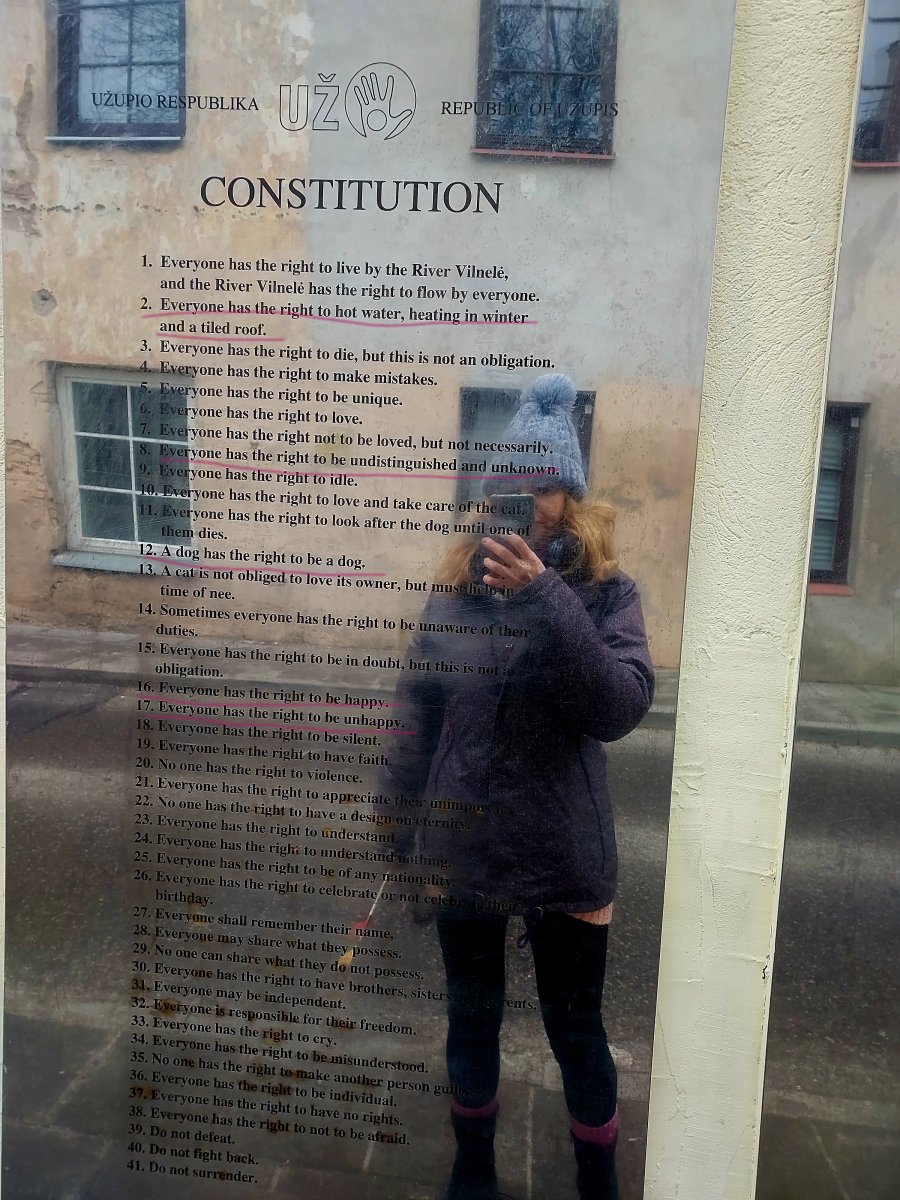 UŽUPIO RESPUBLIKA
UŽ
REPUBLIC OF UŽUPIS
CONSTITUTION
1. Everyone has the right to live by the River Vilnelė,
and the River Vilnelė has the right to flow by everyone.
2. Everyone has the right to hot water, heating in winter
and a tiled roof.
3. Everyone has the right to die, but this is not an obligation.
4. Everyone has the right to make mistakes.
5. Everyone has the right to be unique.
6. Everyone has the right to love.
7. Everyone has the right not to be loved, but not necessarily.
8. Everyone has the right to be undistinguished and unknown.
9. Everyone has the right to idle.
10. Everyone has the right to love and take care of the cat.
11. Everyone has the right to look after the dog until one of
them dies.
12. A dog has the right to be a dog.
13. A cat is not obliged to love its owner, but must help in
time of nee.
14. Sometimes everyone has the right to be unaware of their
duties.
15. Everyone has the right to be in doubt, but this is not a
obligation.
16. Everyone has the right to be happy.
17. Everyone has the right to be unhappy.
18. Everyone has the right to be silent.
19. Everyone has the right to have faith.
20. No one has the right to violence.
21. Everyone has the right to appreciate their
22. No one has the right to have a design on eternity.
23. Everyone has the right to understand.
24. Everyone has the right to understand nothing.
25. Everyone has the right to be of any nationality.
26. Everyone has the right to celebrate or not celebrate their
birthday.
27. Everyone shall remember their name.
28. Everyone may share what they possess.
29. No one can share what they do not possess.
30. Everyone has the right to have brothers, sisters
31. Everyone may be independent.
32. Everyone is responsible for their freedom.
33. Everyone has the right to cry.
34. Everyone has the right to be misunderstood.
35. No one has the right to make another person
36. Everyone has the right to be individual.
37. Everyone has the right to have no rights.
38. Everyone has the right to not to be afraid.
39. Do not defeat.
40. Do not fight back.
41. Do not surrender.